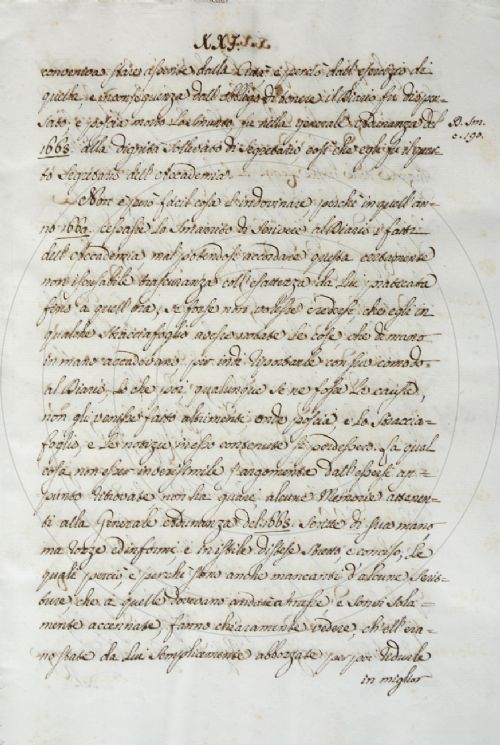 XXIII.
convenva stare assente dalla Città e perciò dall'esercizio di
quella, e in conseguenza dall'obbligo di tenere il Diario fu dispen-
sato e poscia morto Lo fu nella generale Ordinanza del
1668 alla dignità sollevato di Segretario così che egli fu il
to Segretario dell'Accademia.
Non è però facil cosa l'indovinare perché in quell'an-
no 1660. cessasse Lo di scrivere al Diario i fatti
dell'Accademia mal potendosi accordare questa certamente
non iscusabile trascuranza coll'esattezza da Lui praticata
fino a quell'ora, se forse non voleste credere che egli in
qualche stracciafoglio avesse notate Le cose che di mano
in mano accadevano per indi riportarle con suo comodo
al Diario, Lo che poi, qualunque se ne fosse La causa,
non gli venisse fatto altrimenti onde poscia, e Lo straccia-
foglio, e Le notizie in esso contenute si perdessero. La qual
cosa non esser inverisimile s'argomenta dall'essersi ap-
punto ritrovate non ha guari alcune Memorie attenen-
ti alla Generale Ordinanza del 1668. scritte di sua mano
ma rozze ed informi e in istile disteso stretto, e conciso, Le
quali perciò e perché sono anche mancanti d'alcune Scrit-
ture che a quelle dovevano andare e sono sola-
mente accennate, fanno chiaramente vedere, ch'ell'era-
no state da Lui semplicemente abbozzate per poi ridurle
in miglior
c. 190.